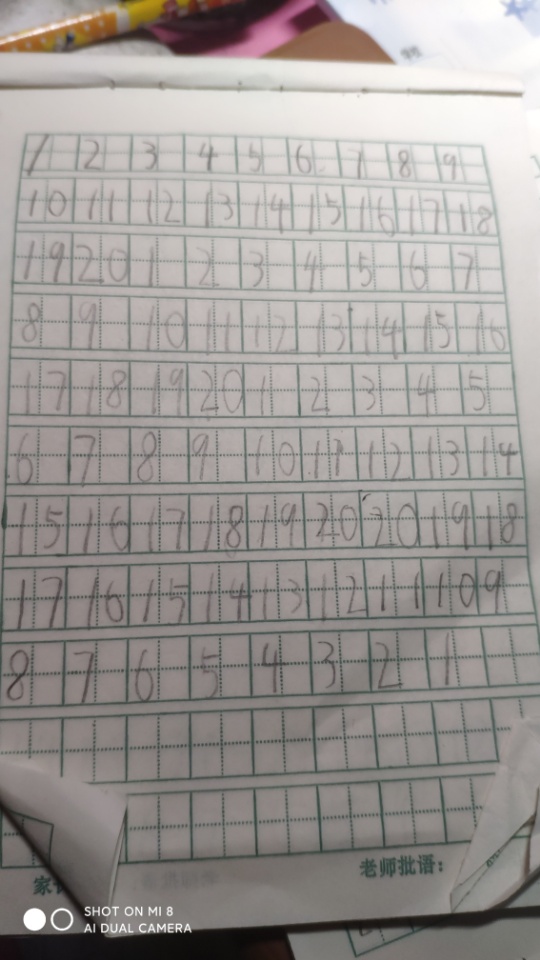 1 2 3 4 5 6 7 8 9
10 11 12 13 14 15 16 17 18
19 20 1 2 3 4 5 6 7
8 9 10 11 12 13 14 15 16
17 18 19 20 1 2 3 4 5
6 7 8 9 10 11 12 13 14
15 16 17 18 19 20 20 19 18
17 16 15 14 13 12 11 10 9
8 7 6 5 4 3 2 1
老师批语：
家
SHOT ON MI 8
AI DUAL CAMERA